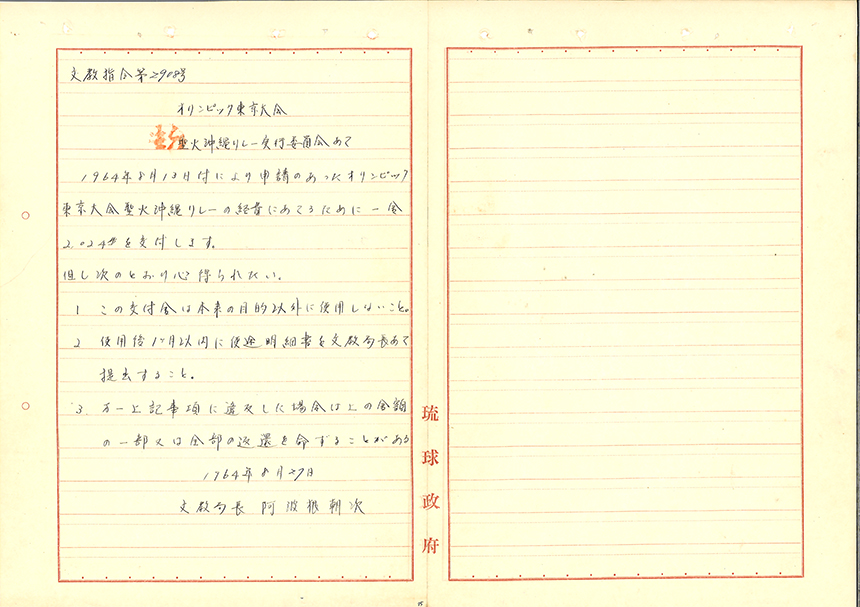 文教指令第2908号
オリンピック東京大会
聖火沖縄リレー実行委員会あて
1964年8月13日付により申請のあったオリンピック
東京大会聖火沖縄リレーの経費にあてるために一金
2,024弗を交付します。
但し次のとおり心得られたい。
1 この交付金は本来の目的以外に使用しないこと。
2 使用後1ケ月以内に使途明細書を文教局長あて
提出すること。
3. 万一上記事項に違反した場合は上の金額
の一部又は全部の返還を命ずることがある
1964年8月27日
文教局長 阿波根朝次
琉球政府